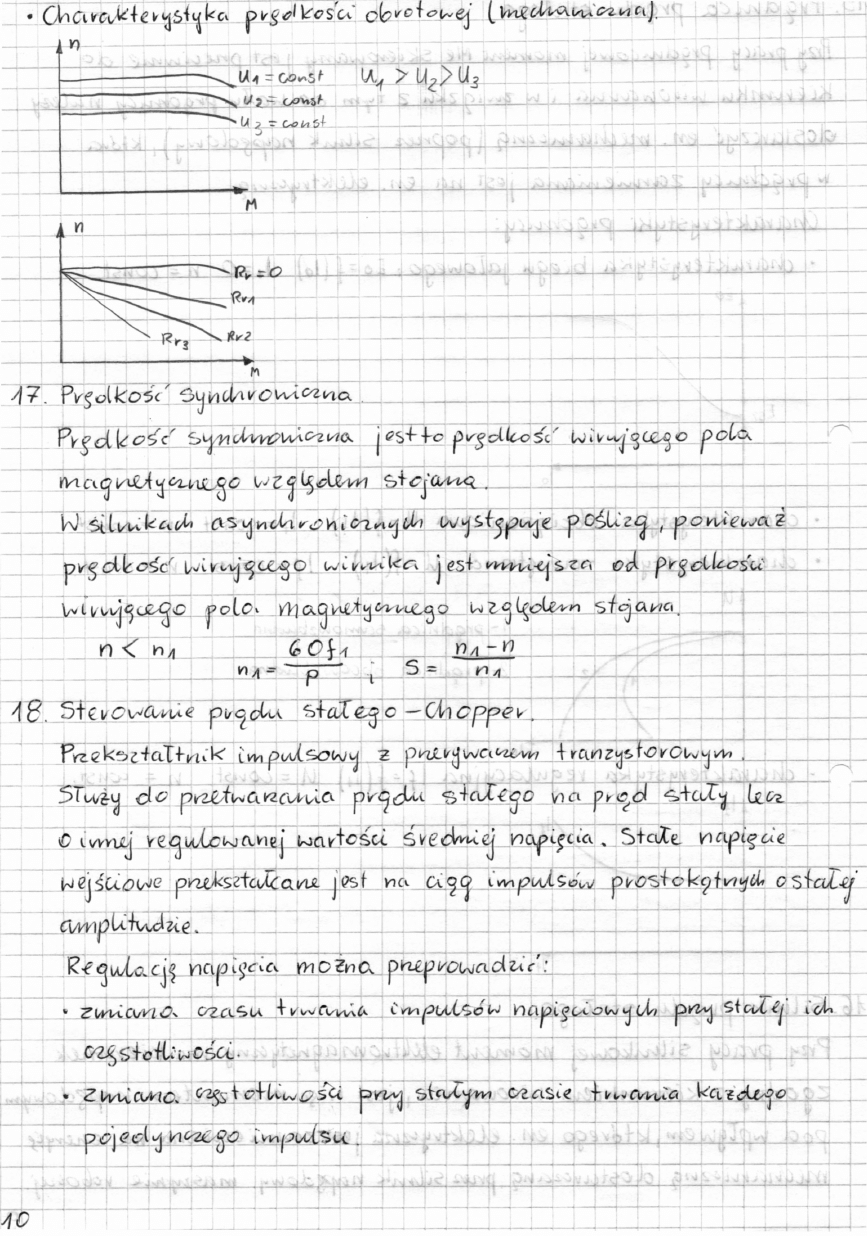 • Charakterystyka prędkości obrotowej (mechaniczna).
n
U1 = const U1 > U2 > U3
U2 = const
U3 = const
M
n
Rr = 0
Rr1
Rr3 Rr2
M
17. Prędkość synchroniczna
Prędkość synchroniczna jest to prędkość wirującego pola
magnetycznego względem stojana.
W silnikach asynchronicznych występuje poślizg, ponieważ
prędkość wirującego wirnika jest mniejsza od prędkości
wirującego pola magnetycznego względem stojana.
n < n1 n1 = 60f1/p ; S = n1-n/n1
18. Sterowanie prądu stałego - Chopper.
Przekształtnik impulsowy z przerywaczem tranzystorowym.
Służy do przetwarzania prądu stałego na prąd stały lecz
o innej regulowanej wartości średniej napięcia. Stałe napięcie
wejściowe przekształcane jest na ciąg impulsów prostokątnych o stałej
amplitudzie.
Regulację napięcia można przeprowadzić:
• zmiana czasu trwania impulsów napięciowych przy stałej ich
częstotliwości.
• zmiana częstotliwości przy stałym czasie trwania każdego
pojedynczego impulsu.
10